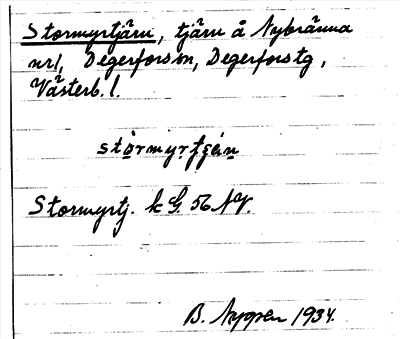 Stormyrtjärn, tjärn å Nybränna
nr1, Degerfors sn, Degerfors tg,
Västerb. l.
stòrmyrtʃèn
Stormyrtj. k G. 56 NV.
B. Nygren 1934.